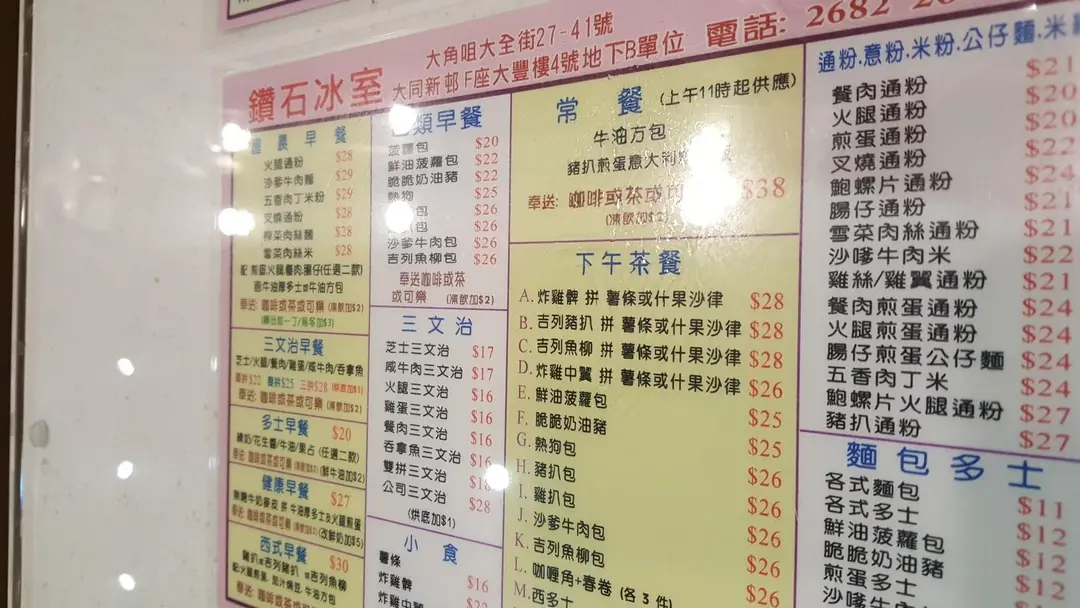 大角咀大全街27-41號
鑽石冰室
大同新邨F座大豐樓4號地下B單位
電話: 2682
早餐
火腿通粉 $28
沙爹牛肉麵 $29
五香肉丁米粉 $29
叉燒通粉 $28
榨菜肉絲麵 $28
雪菜肉絲米 $28
奉送: 咖啡或茶或可樂 (凍飲加$2)
三文治早餐
芝士/火腿/餐肉/雞蛋/咸牛肉/吞拿魚
$20 雙拼$25 三拼$28 (烘底加$1)
奉送: 咖啡或茶或可樂 (凍飲加$2)
多士早餐 $20
花生醬/牛油/果占 (任選二款)
奉送: 咖啡或茶或可樂 (凍飲加$2) (鮮牛油加$2)
健康早餐 $27
牛油厚多士及火腿煎蛋
奉送: 咖啡或茶或可樂 (凍飲加$2) (改鮮奶加$5)
西式早餐 $30
雞扒或吉列豬扒 或吉列魚柳
配火腿煎蛋, 茄汁焗豆, 牛油方包
奉送: 咖啡或茶或可樂
類早餐
菠蘿包 $20
鮮油菠蘿包 $22
脆脆奶油豬 $22
熱狗 $25
包 $26
包 $26
沙爹牛肉包 $26
吉列魚柳包 $26
奉送咖啡或茶
或可樂 (凍飲加$2)
三文治
芝士三文治 $17
咸牛肉三文治 $17
火腿三文治 $16
雞蛋三文治 $16
餐肉三文治 $16
吞拿魚三文治 $16
雙拼三文治
公司三文治 $28
(烘底加$1)
小食
薯條
炸雞髀 $16
炸雞中翼
常餐 (上午11時起供應)
牛油方包
豬扒煎蛋意大利
奉送: 咖啡或茶或可 $38
(凍飲加$2)
下午茶餐
A. 炸雞髀 拼 薯條或什果沙律 $28
B. 吉列豬扒 拼 薯條或什果沙律 $28
C. 吉列魚柳 拼 薯條或什果沙律 $28
D. 炸雞中翼 拼 薯條或什果沙律 $26
E. 鮮油菠蘿包 $25
F. 脆脆奶油豬 $25
G. 熱狗包 $26
H. 豬扒包 $26
I. 雞扒包 $26
J. 沙爹牛肉包 $26
K. 吉列魚柳包 $26
L. 咖喱角+春卷 (各3件) $26
M. 西多士
通粉.意粉.米粉.公仔麵.米
$21
餐肉通粉 $20
火腿通粉 $20
煎蛋通粉 $22
叉燒通粉 $24
鮑螺片通粉 $21
腸仔通粉 $21
雪菜肉絲通粉 $22
沙嗲牛肉米 $21
雞絲/雞翼通粉 $24
餐肉煎蛋通粉 $24
火腿煎蛋通粉 $24
腸仔煎蛋公仔麵 $24
五香肉丁米 $27
鮑螺片火腿通粉 $27
豬扒通粉
麵包多士
各式麵包 $11
各式多士 $12
鮮油菠蘿包 $12
脆脆奶油豬 $12
煎蛋多士
沙嗲牛